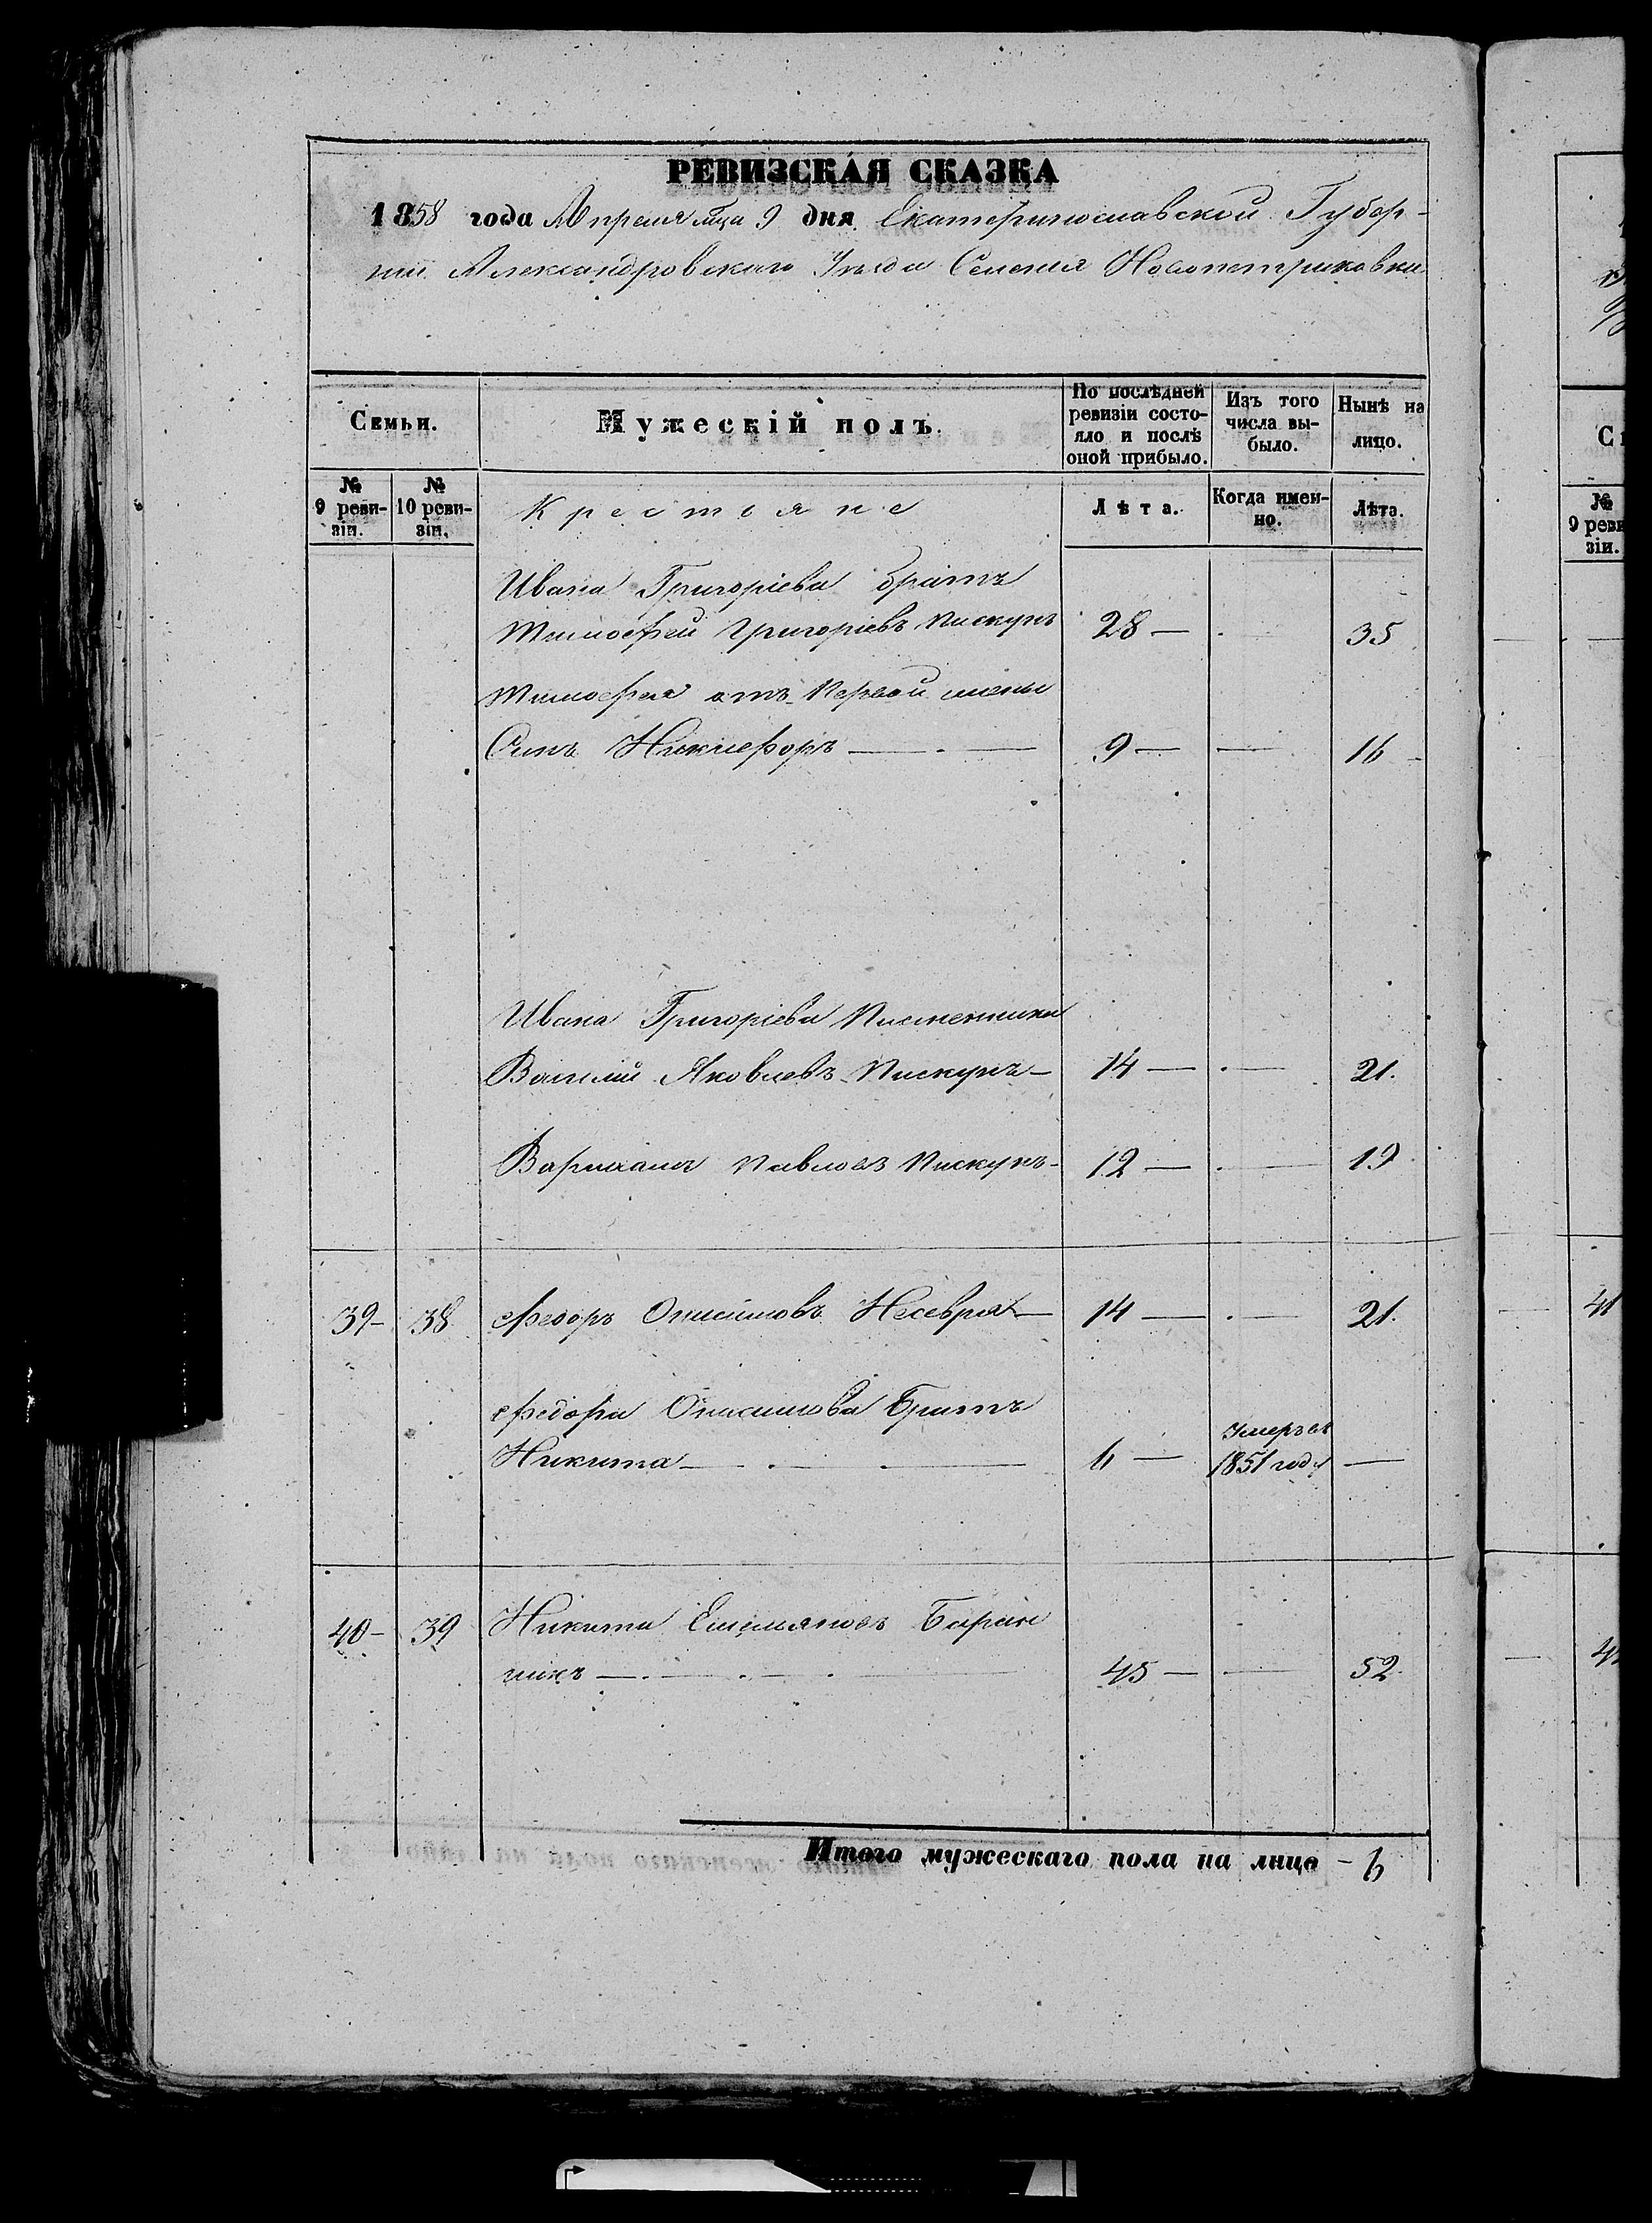 РЕВИЗСКАЯ СКАЗКА
1858 года Апреля мца 9 дня. Екатеринославской Губер-
нии Александровскаго Уезда Селения Новопетриковки
Семьи.
Мужескій полъ.
По послѣдней ревизіи состояло и послѣ оной прибыло.
Изъ того числа выбыло.
Нынѣ на лицо.
№ 9 ревизіи.
№ 10 ревизіи.
Крестьяне
Лѣта.
Когда именно.
Лѣта.
Ивана Григоріева братъ
Тимофей Григоріевъ Пискунъ 28 — 35
Тимофея отъ первой жены
Сынъ Никифоръ — 9 — — 16
Ивана Григоріева Племенники
Василий Яковлевъ Пискунъ — 14 — — 21.
Вармалам Павловъ Пискунъ — 12 — — 19
39 — 38 Федоръ Онисимовъ Несеврят — 14 — — 21.
Федора Онисимова Братъ
Умеръ въ
Никита — 6 — 1851 году —
40 — 39 Никита Емельяновъ Баран
никъ — 45 — — 52
Итого мужескаго пола на лице — 6
№ 9 реви-
зіи.
41